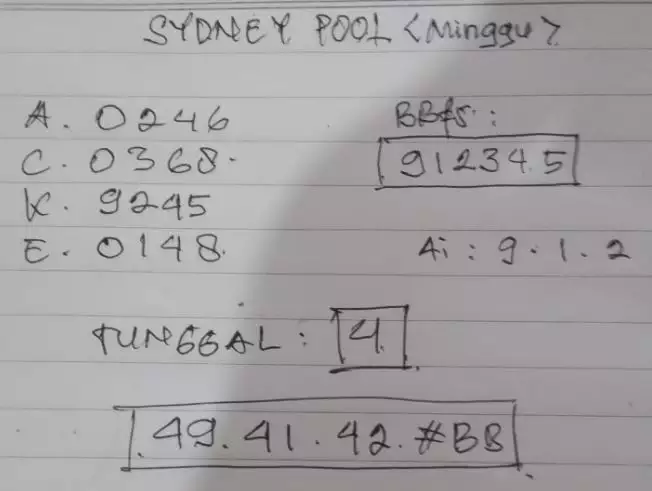 SYDNEY POOL <Minggu>
A. 0246
C. 0368.
K. 9245
E. 0148.
BBfs :
91234.5
Ai : 9.1.2
TUNGGAL : 4.
.49.41.42.#BB